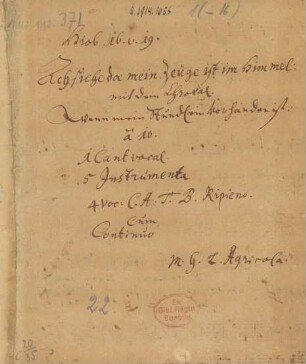 b. 1914. 1055
Nr. 371
1(-16)
Hiob. 16. v. 19.
Ach siehe da mein Zeuge ist im Himmel:
mit dem Choral.
Wann mein Stündlein Vorhanden ist:
à 10.
1 Cant vocal
5 Instrumenta
4 voc: C. A. T. B. Ripieno.
Cum
Continuo
M. G. L. Agricola.
22
Ex
Bibl. Regia
Berolin.